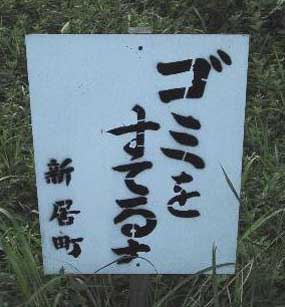 ゴミを
すてるな
新居町